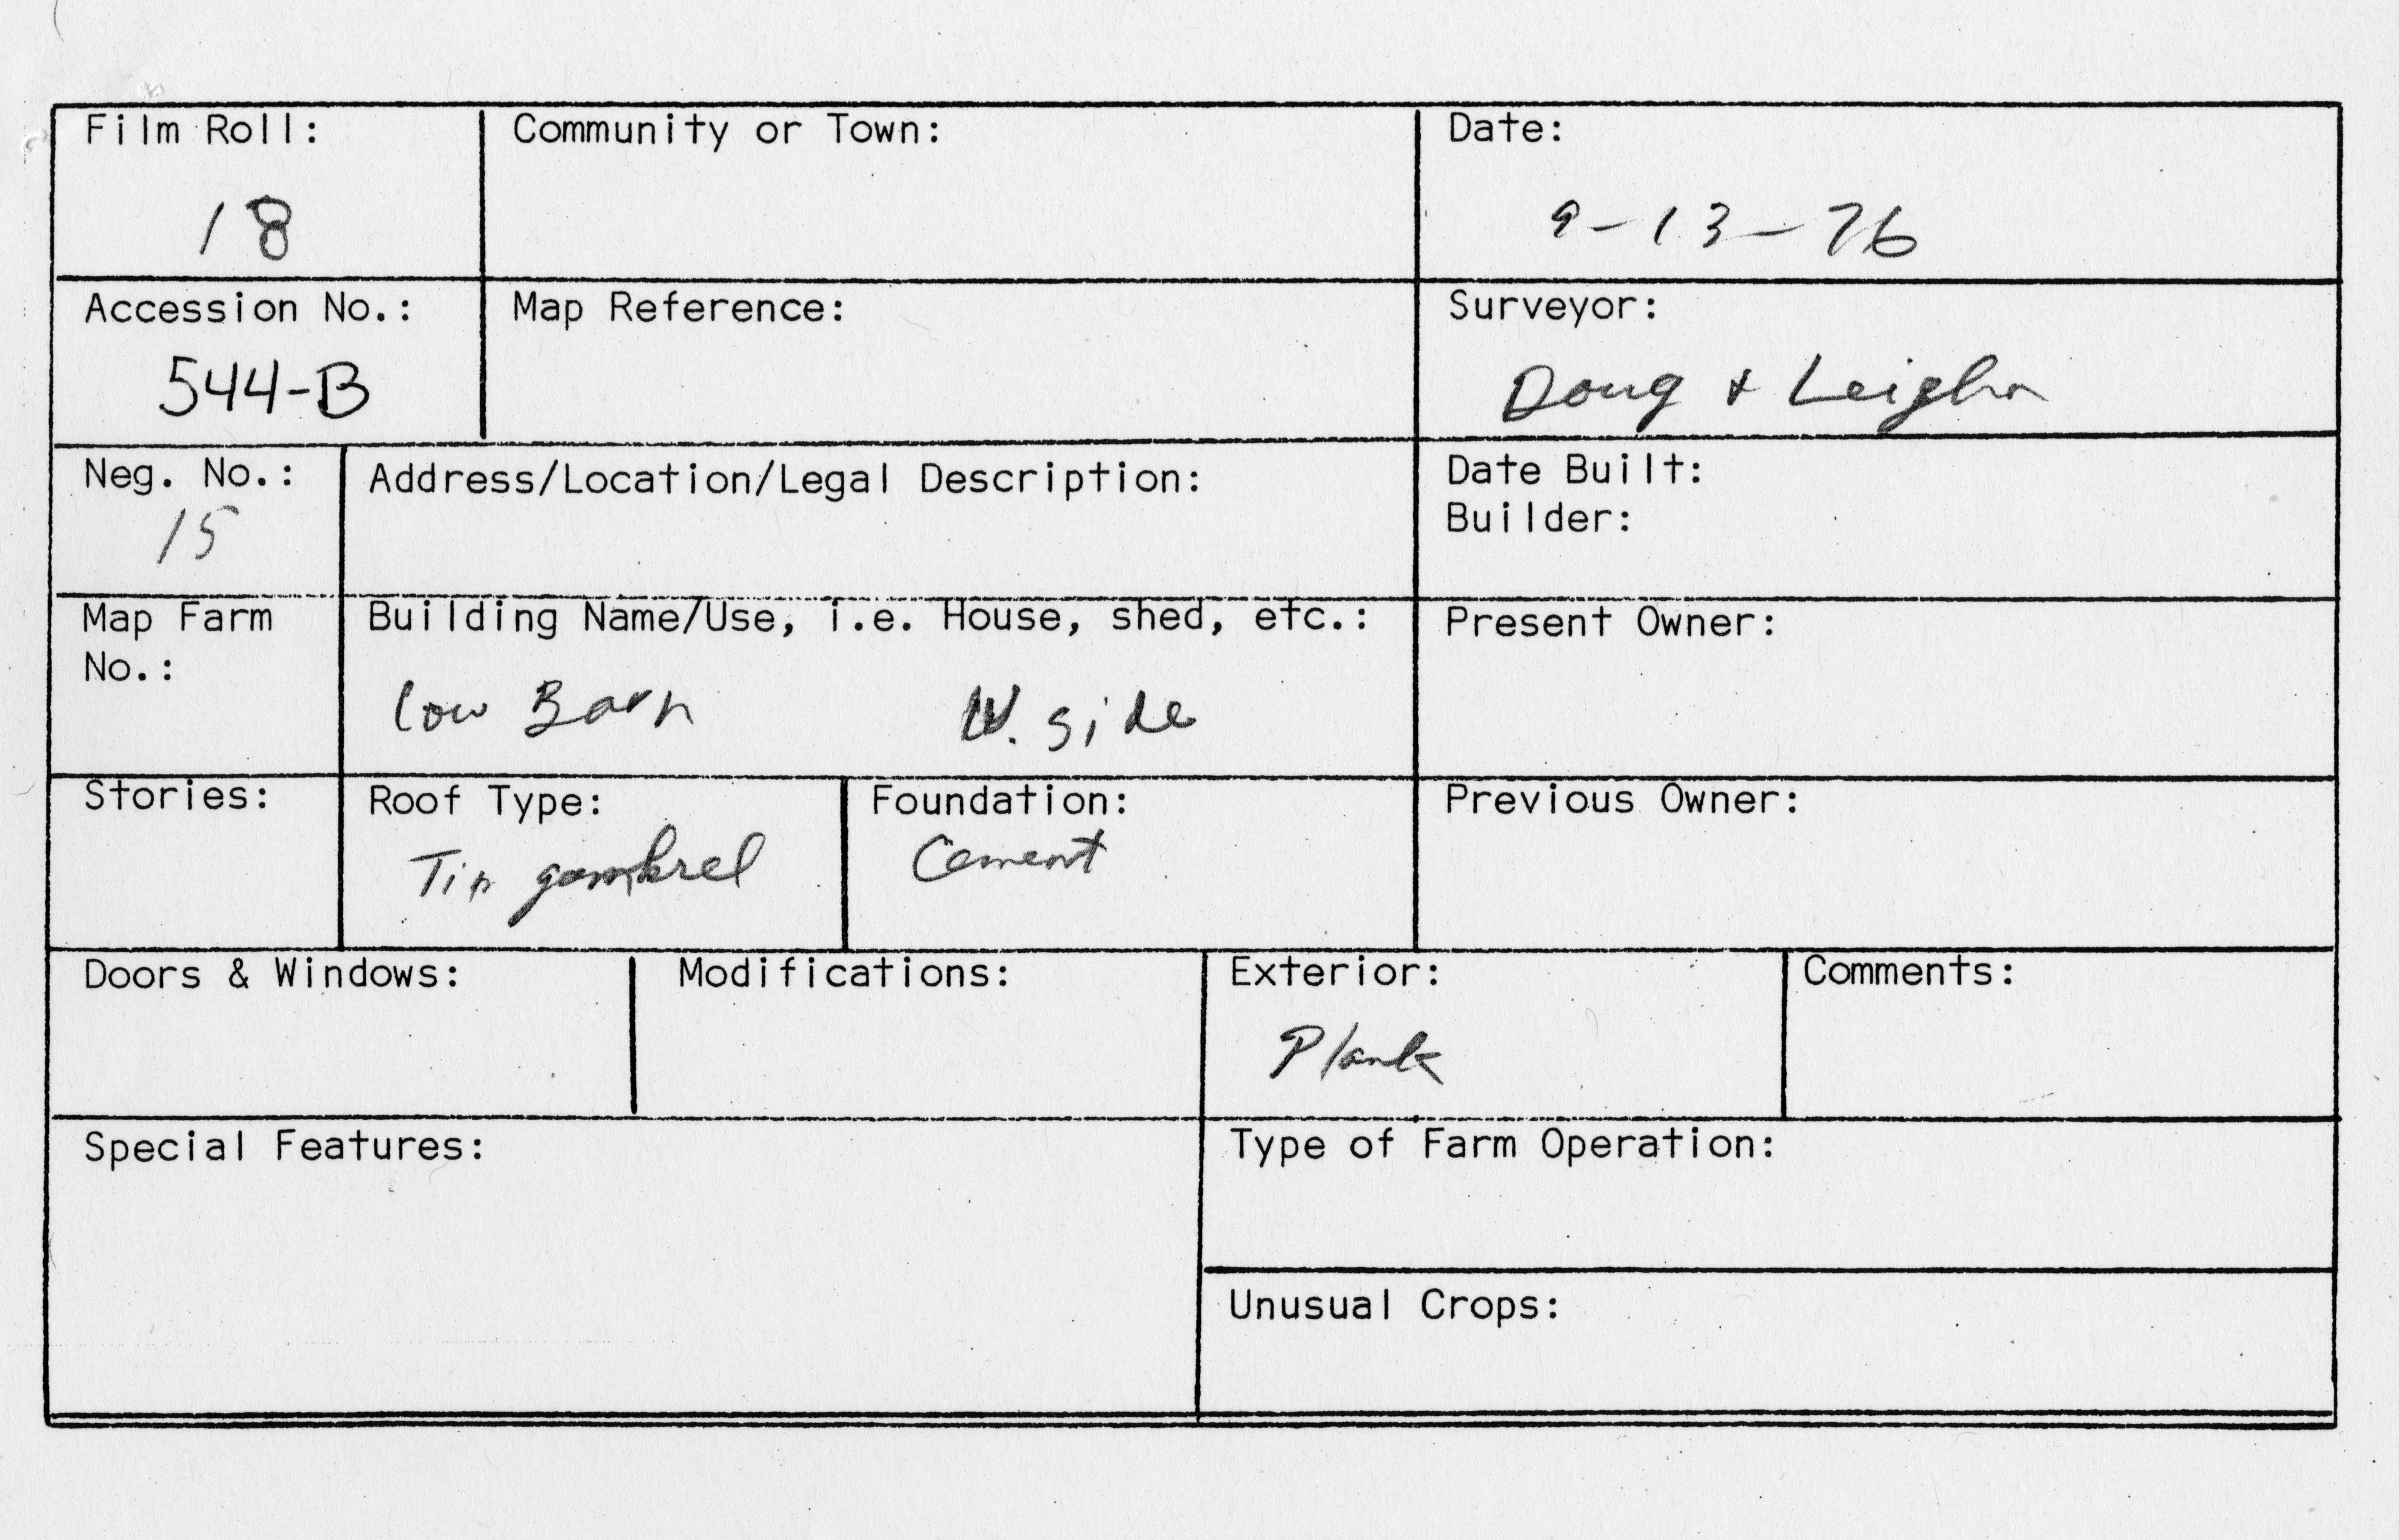 Film Roll:
18
Community or Town:
Date:
9-13-76
Accession No.:
544-B
Map Reference:
Surveyor:
Doug + Leigh
Neg. No.:
15
Address/Location/Legal Description:
Date Built:
Builder:
Map Farm
No.:
Building Name/Use, i.e. House, shed, etc.:
low Barn W. side
Present Owner:
Stories:
Roof Type:
Tin gambrel
Foundation:
Cement
Previous Owner:
Doors & Windows:
Modifications:
Exterior:
Plank
Comments:
Special Features:
Type of Farm Operation:
Unusual Crops: